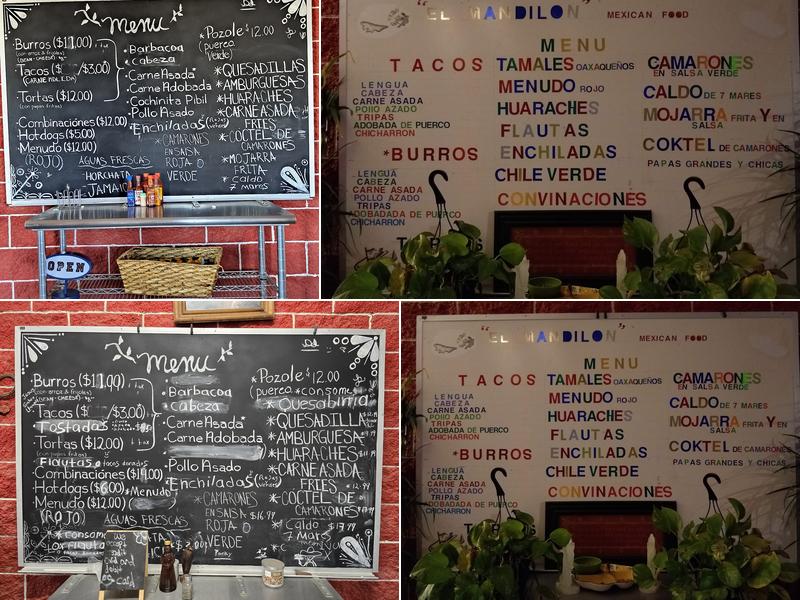 menu
Burros ($11.00)
(con arroz & frijoles)
(BEAN-CHEESE)
Tacos ( /$3.00)
(CARNE MOLIDA)
Tortas ($12.00)
(con papas fritas)
Combinaciónes ($12.00)
Hotdogs ($5.00)
Menudo ($12.00)
(ROJO)
AGUAS FRESCAS
HORCHATA
JAMAICA
• Barbacoa
• Cabeza
• Carne Asada
• Carne Adobada
• Cochinita Pibil
• Pollo Asado
* Enchiladas
* CAMARONES
EN SALSA
ROJA O
VERDE
* Pozole $12.00
(puerco
Verde)
* QUESADILLAS
* AMBURGUESAS
* HUARACHES
* CARNE ASADA
FRIES
* COCTEL DE
CAMARONES
* MOJARRA
FRITA
* Caldo
7 mares
OPEN
"EL MANDILON" MEXICAN FOOD
MENU
TACOS
LENGUA
CABEZA
CARNE ASADA
POLLO AZADO
TRIPAS
ADOBADA DE PUERCO
CHICHARRON
*BURROS
LENGUA
CABEZA
CARNE ASADA
POLLO AZADO
TRIPAS
ADOBADADA DE PUERCO
CHICHARRON
TAMALES OAXAQUEÑOS
MENUDO ROJO
HUARACHES
FLAUTAS
ENCHILADAS
CHILE VERDE
CONVINACIONES
CAMARONES
EN SALSA VERDE
CALDO DE 7 MARES
MOJARRA FRITA Y EN
SALSA
COKTEL DE CAMARONES
PAPAS GRANDES Y CHICAS
menu
Burros ($11.00)
(BEAN-CHEESE)
Tacos ( /$3.00)
Tostadas
Tortas ($12.00)
(con papas fritas)
Flautas o tacos dorados
Combinaciónes ($14.00)
Hotdogs ($6.00) *Menudo
Menudo ($12.00)
(ROJO)
AGUAS FRESCAS
* consome
• Barbacoa
• Cabeza
• Carne Asada
• Carne Adobada
• Pollo Asado
* Enchiladas
* CAMARONES
EN SALSA $16.99
ROJA O
VERDE
* Pozole $12.00
(puerco * consome
* Quesabirria
* QUESADILLA
* AMBURGUESA
* HUARACHES
* CARNE ASADA
FRIES
* COCTEL DE
CAMARONES
* Caldo $17.99
7 mares
"EL MANDILON" MEXICAN FOOD
MENU
TACOS
LENGUA
CABEZA
CARNE ASADA
POLLO AZADO
TRIPAS
ADOBADA DE PUERCO
CHICHARRON
*BURROS
LENGUA
CABEZA
CARNE ASADA
POLLO AZADO
TRIPAS
ADOBADADA DE PUERCO
CHICHARRON
TAMALES OAXAQUEÑOS
MENUDO ROJO
HUARACHES
FLAUTAS
ENCHILADAS
CHILE VERDE
CONVINACIONES
CAMARONES
EN SALSA VERDE
CALDO DE 7 MARES
MOJARRA FRITA Y EN
SALSA
COKTEL DE CAMARONES
PAPAS GRANDES Y CHICAS